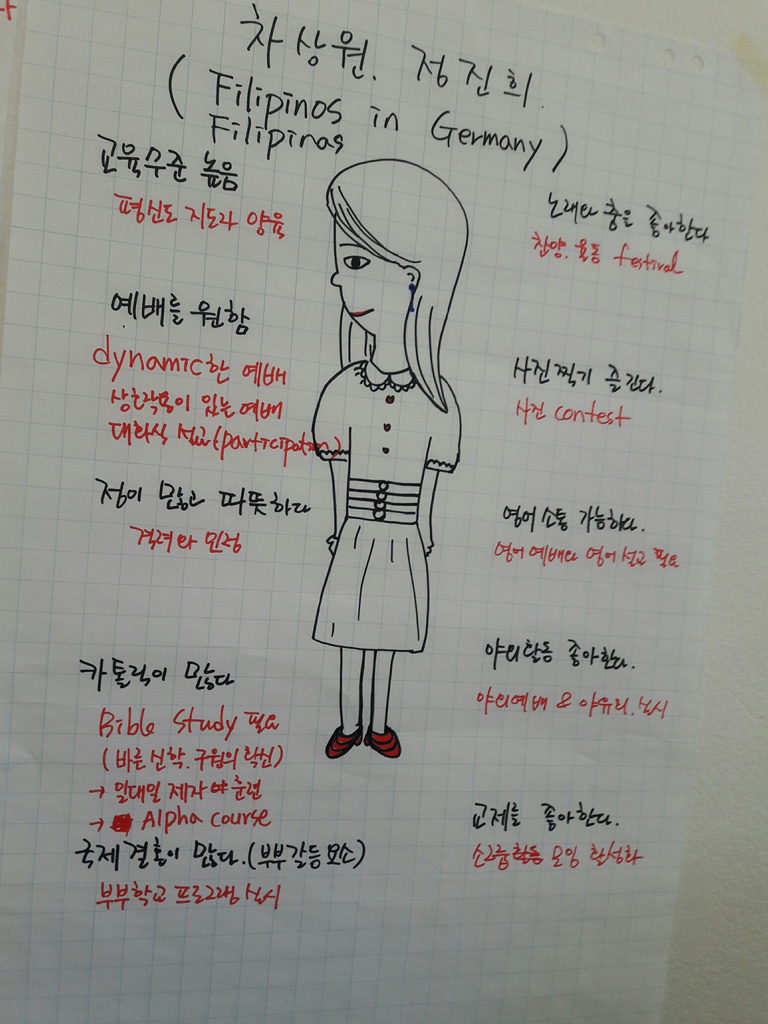 차상원. 정진희.
( Filipinos in Germany )
Filipinas
교육수준 높음
평신도 지도자 양육
예배를 원함
dynamic한 예배
상호작용이 있는 예배
대화식 설교(participation)
정이 많고 따뜻하다
격려와 인정
카톨릭이 많다
Bible Study 필요
(바른 신학. 구원의 확신)
→ 일대일 제자 훈련
→ Alpha course
국제결혼이 많다.(부부갈등 요소)
부부학교 프로그램 실시
노래와 춤을 좋아한다
찬양. 율동 festival
사진찍기 즐긴다.
사진 contest
영어 소통 가능하다.
영어 예배와 영어 설교 필요
야외활동 좋아한다.
야외예배 & 야유회. 실시
교제를 좋아한다.
소그룹활동 모임 활성화